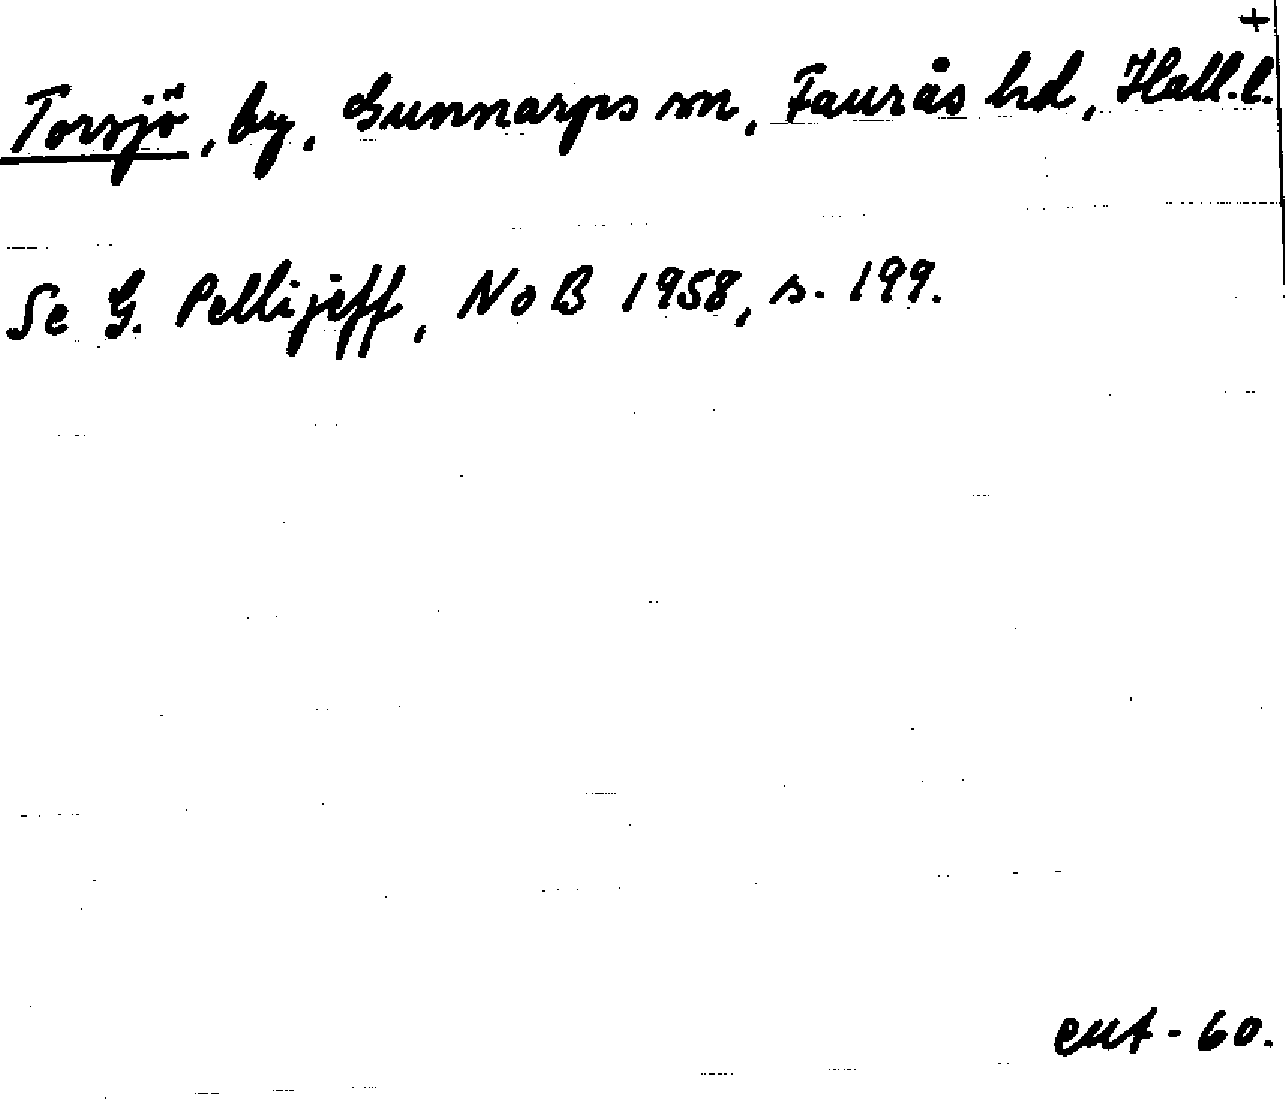 +
Torsjö, by, Gunnarps sn, Faurås hd, Hall.l.
Se G. Pellijeff, NoB 1958, s. 199.
-60.